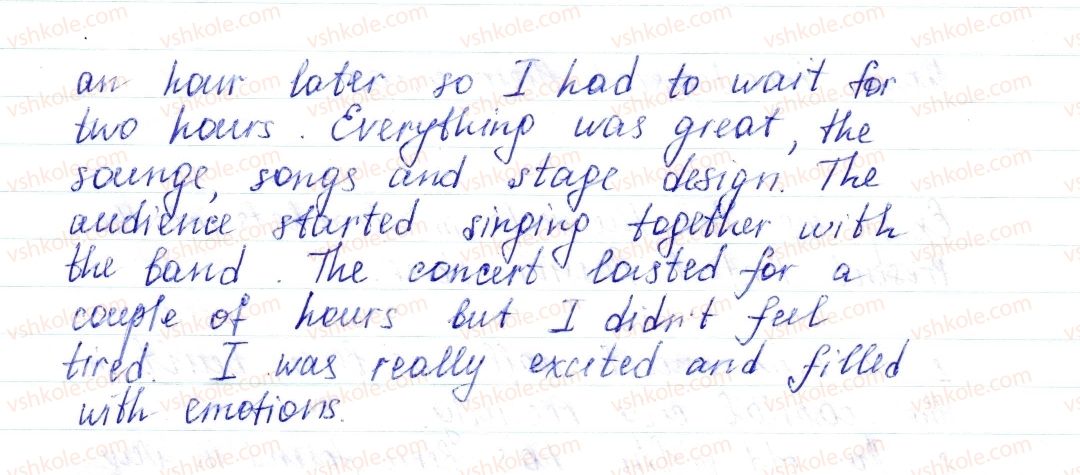 an hour later so I had to wait for
two hours. Everything was great, the
sounge, songs and stage design. The
audience started singing together with
the band. The concert lasted for a
couple of hours but I didn't feel
tired. I was really excited and filled
with emotions.